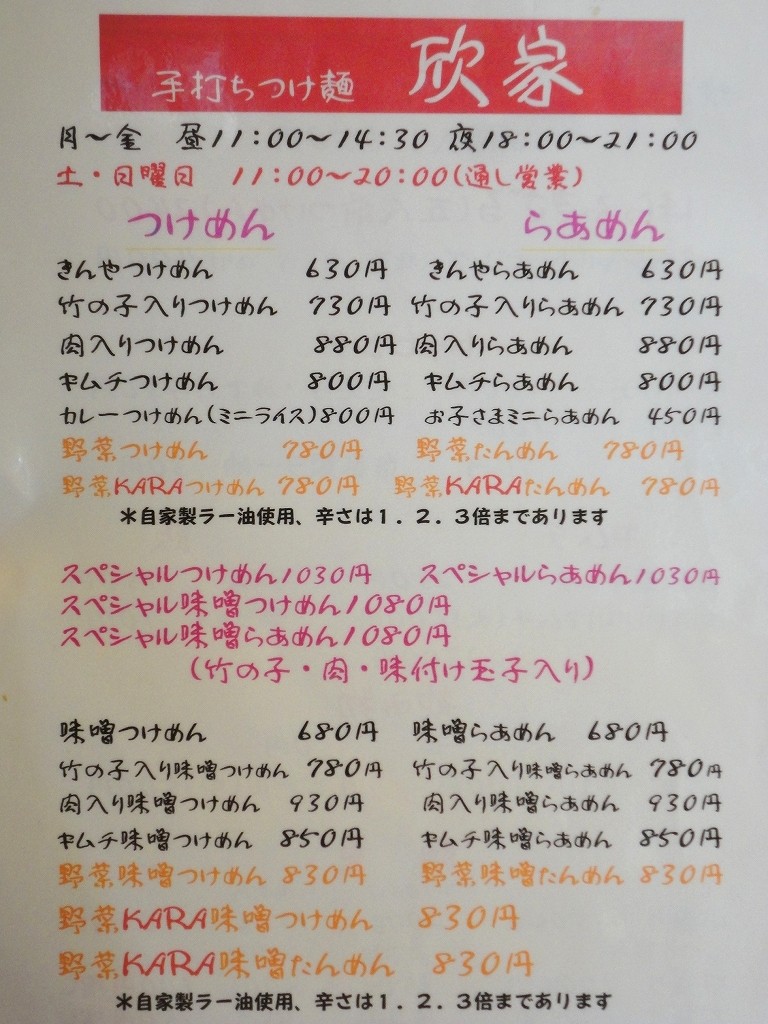 手打ちつけ麺 欣家
月～金 昼11：00～14：30 夜18：00～21：00
土・日曜日 11：00～20：00(通し営業)
つけめん らあめん
きんやつけめん 630円 きんやらあめん 630円
竹の子入りつけめん 730円 竹の子入りらあめん 730円
肉入りつけめん 880円 肉入りらあめん 880円
キムチつけめん 800円 キムチらあめん 800円
カレーつけめん(ミニライス)800円 お子さまミニらあめん 450円
野菜つけめん 780円 野菜たんめん 780円
野菜KARAつけめん 780円 野菜KARAたんめん 780円
＊自家製ラー油使用、辛さは１．２．３倍まであります
スペシャルつけめん1030円 スペシャルらあめん1030円
スペシャル味噌つけめん1080円
スペシャル味噌らあめん1080円
(竹の子・肉・味付け玉子入り)
味噌つけめん 680円 味噌らあめん 680円
竹の子入り味噌つけめん 780円 竹の子入り味噌らあめん 780円
肉入り味噌つけめん 930円 肉入り味噌らあめん 930円
キムチ味噌つけめん 850円 キムチ味噌らあめん 850円
野菜味噌つけめん 830円 野菜味噌たんめん 830円
野菜KARA味噌つけめん 830円
野菜KARA味噌たんめん 830円
＊自家製ラー油使用、辛さは１．２．３倍まであります